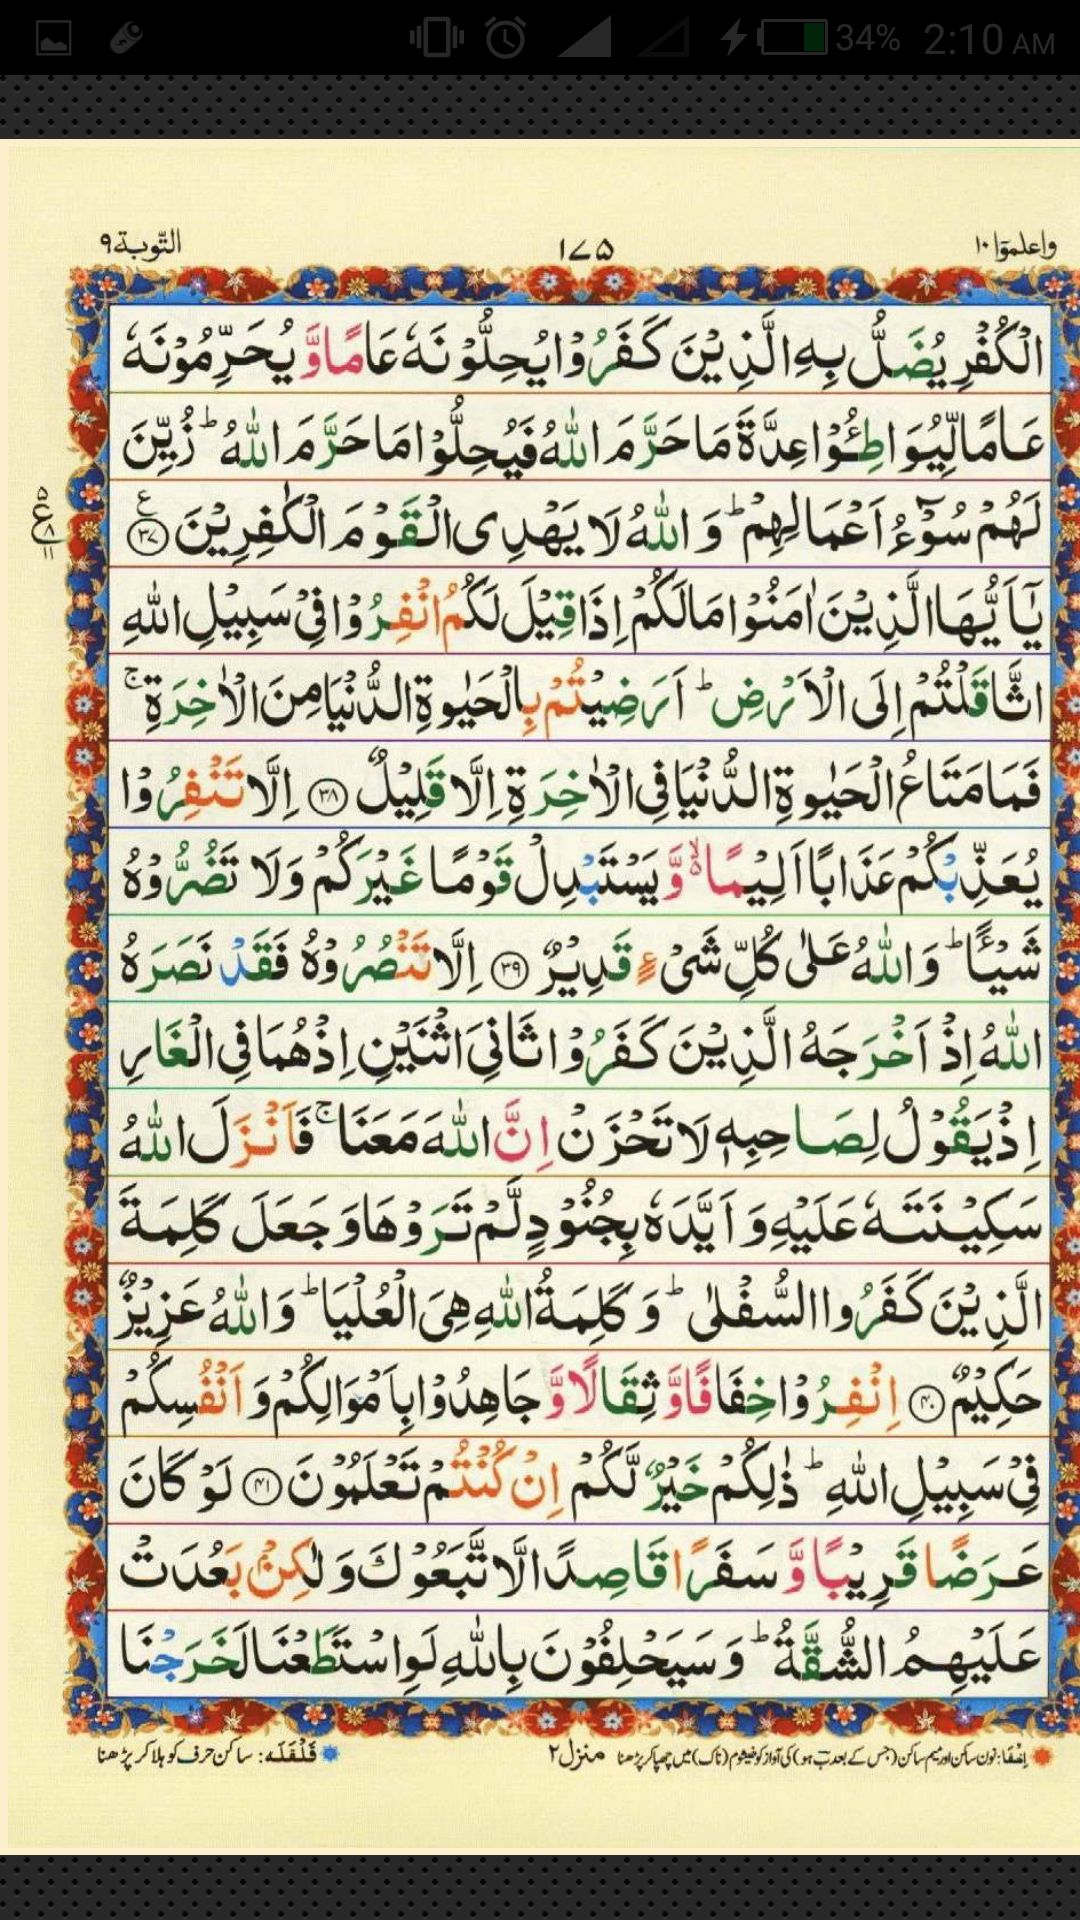 34% 2:10 AM
واعلموۤا ١٠ ١٧٥ التّوبة ٩
الْكُفْرِ يُضَلُّ بِهِ الَّذِيْنَ كَفَرُوْا يُحِلُّوْنَهٗ عَامًا وَّ يُحَرِّمُوْنَهٗ
عَامًا لِّيُوَاطِـُٔوْا عِدَّةَ مَا حَرَّمَ اللّٰهُ فَيُحِلُّوْا مَا حَرَّمَ اللّٰهُ ؕ زُيِّنَ
لَهُمْ سُوْٓءُ اَعْمَالِهِمْ ؕ وَ اللّٰهُ لَا يَهْدِی الْقَوْمَ الْكٰفِرِيْنَ ﴿۳۷﴾ ع
ع ٥ ٨ ١١
يٰۤاَيُّهَا الَّذِيْنَ اٰمَنُوْا مَا لَكُمْ اِذَا قِيْلَ لَكُمُ انْفِرُوْا فِیْ سَبِيْلِ اللّٰهِ
اثَّاقَلْتُمْ اِلَى الْاَرْضِ ؕ اَرَضِيْتُمْ بِالْحَيٰوةِ الدُّنْيَا مِنَ الْاٰخِرَةِ ۚ
فَمَا مَتَاعُ الْحَيٰوةِ الدُّنْيَا فِی الْاٰخِرَةِ اِلَّا قَلِيْلٌ ﴿۳۸﴾ اِلَّا تَنْفِرُوْا
يُعَذِّبْكُمْ عَذَابًا اَلِيْمًا ۙ۬ وَّ يَسْتَبْدِلْ قَوْمًا غَيْرَكُمْ وَلَا تَضُرُّوْهُ
شَيْـًٔا ؕ وَ اللّٰهُ عَلٰى كُلِّ شَیْءٍ قَدِيْرٌ ﴿۳۹﴾ اِلَّا تَنْصُرُوْهُ فَقَدْ نَصَرَهُ
اللّٰهُ اِذْ اَخْرَجَهُ الَّذِيْنَ كَفَرُوْا ثَانِیَ اثْنَيْنِ اِذْ هُمَا فِی الْغَارِ
اِذْ يَقُوْلُ لِصَاحِبِهٖ لَا تَحْزَنْ اِنَّ اللّٰهَ مَعَنَا ۚ فَاَنْزَلَ اللّٰهُ
سَكِيْنَتَهٗ عَلَيْهِ وَ اَيَّدَهٗ بِجُنُوْدٍ لَّمْ تَرَوْهَا وَ جَعَلَ كَلِمَةَ
الَّذِيْنَ كَفَرُوا السُّفْلٰى ؕ وَ كَلِمَةُ اللّٰهِ هِیَ الْعُلْيَا ؕ وَ اللّٰهُ عَزِيْزٌ
حَكِيْمٌ ﴿۴۰﴾ اِنْفِرُوْا خِفَافًا وَّ ثِقَالًا وَّ جَاهِدُوْا بِاَمْوَالِكُمْ وَ اَنْفُسِكُمْ
فِیْ سَبِيْلِ اللّٰهِ ؕ ذٰلِكُمْ خَيْرٌ لَّكُمْ اِنْ كُنْتُمْ تَعْلَمُوْنَ ﴿۴۱﴾ لَوْ كَانَ
عَرَضًا قَرِيْبًا وَّ سَفَرًا قَاصِدًا لَّاتَّبَعُوْكَ وَ لٰكِنْۢ بَعُدَتْ
عَلَيْهِمُ الشُّقَّةُ ؕ وَ سَيَحْلِفُوْنَ بِاللّٰهِ لَوِ اسْتَطَعْنَا لَخَرَجْنَا
اِخْفَا: نون ساکن اور میم ساکن (جس کے بعد ب ہو) کی آواز کو خیشوم (ناک) میں چھپا کر پڑھنا منزل ٢ قَلْقَلَه: ساکن حرف کو ہلا کر پڑھنا